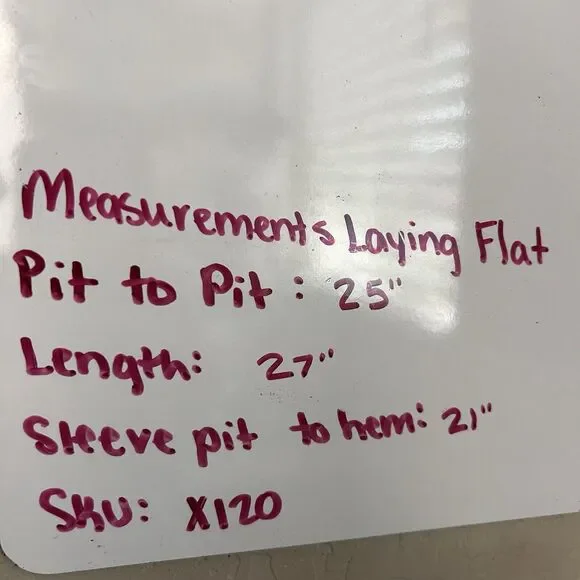 Measurements Laying Flat
Pit to Pit: 25"
Length: 27"
Sleeve pit to hem: 21"
SKU: X120